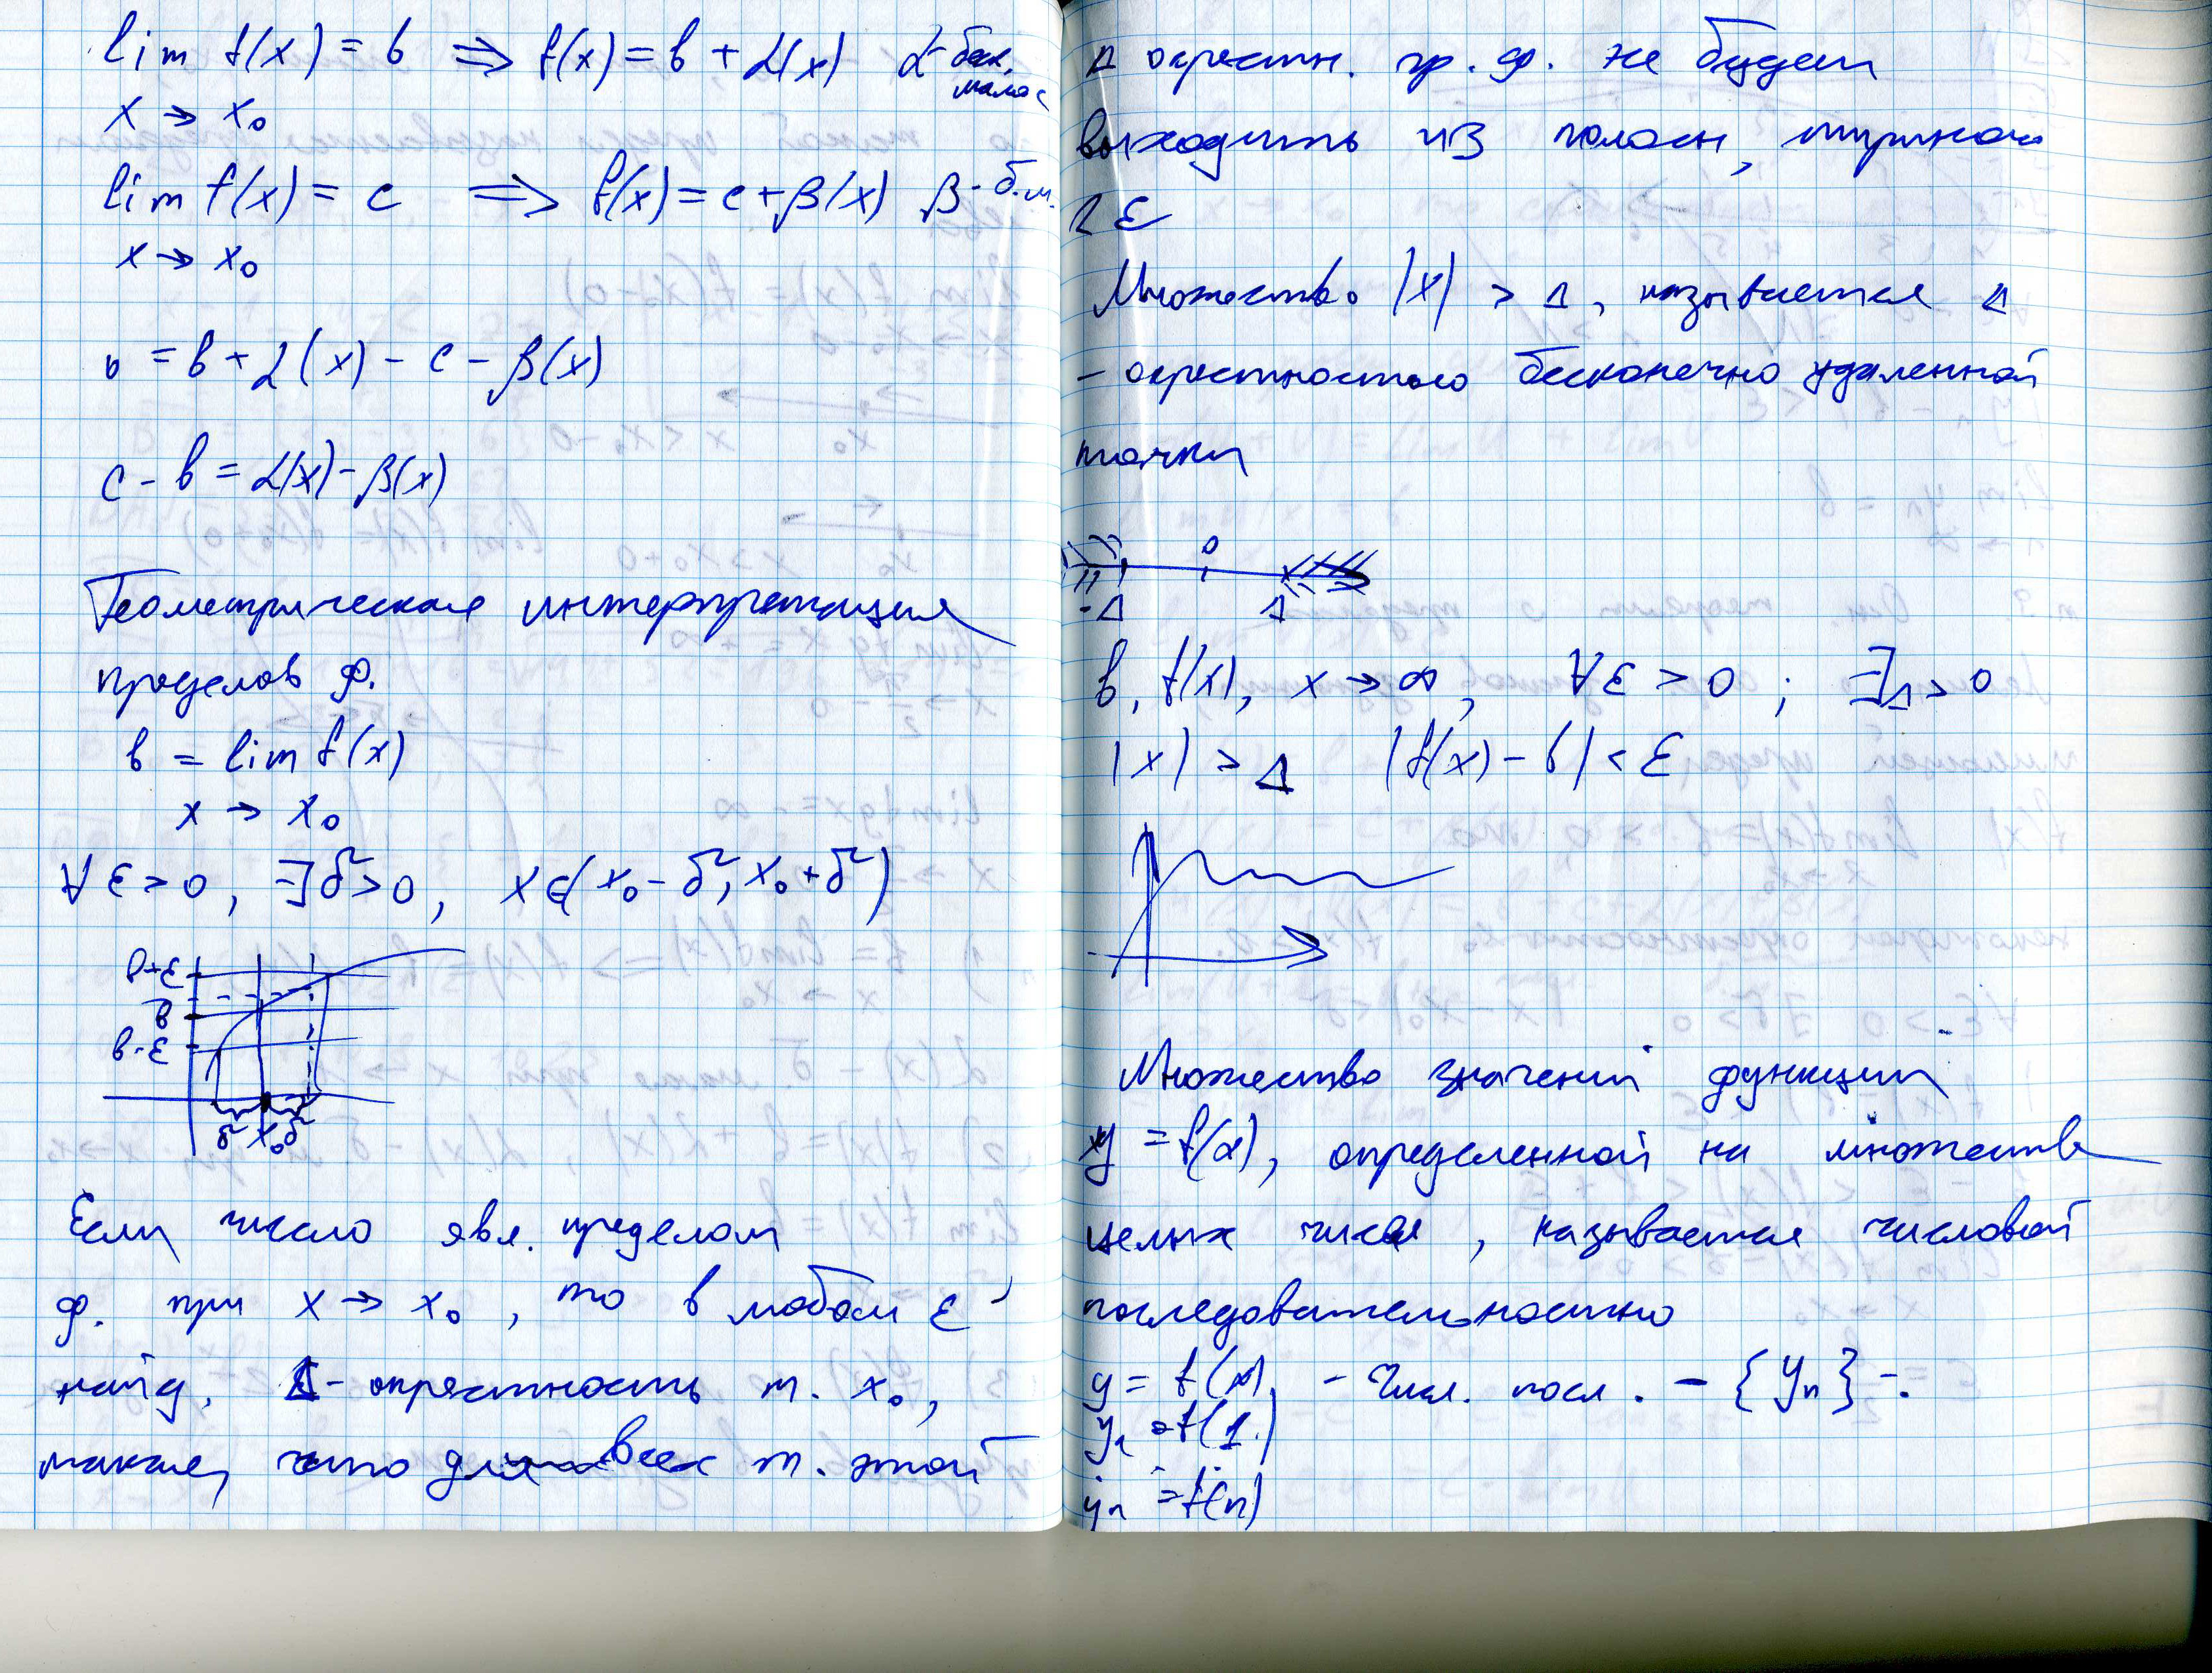 lim f(x) = в ⇒ f(x) = в + α(x) α - беск. малое
x → x₀
lim f(x) = c ⇒ f(x) = c + β(x) β - б.м.
x → x₀
0 = в + α(x) - c - β(x)
c - в = α(x) - β(x)
Геометрическая интерпретация
пределов ф.
в = lim f(x)
x → x₀
∀ε > 0, ∃δ > 0, x ∈ (x₀ - δ, x₀ + δ)
в+ε
в
в-ε
δ x₀ δ
Если число явл. пределом
ф. при x → x₀, то в любом ε -
найд. Δ - окрестность т. x₀,
такая, что для всех т. этой
Δ окрестн. гр. ф. не будет
выходить из полосы, шириной
2ε
Множество |x| > Δ, называется Δ
- окрестностью бесконечно удаленной
точки
0
-Δ Δ
в, f(x), x → ∞, ∀ε > 0; ∃Δ > 0
|x| > Δ |f(x) - в| < ε
Множество значений функции
y = f(x), определенной на множестве
целых чисел, называется числовой
последовательностью
y = f(x) - Числ. посл. - {yₙ} -.
y₁ = f(1)
yₙ = f(n)